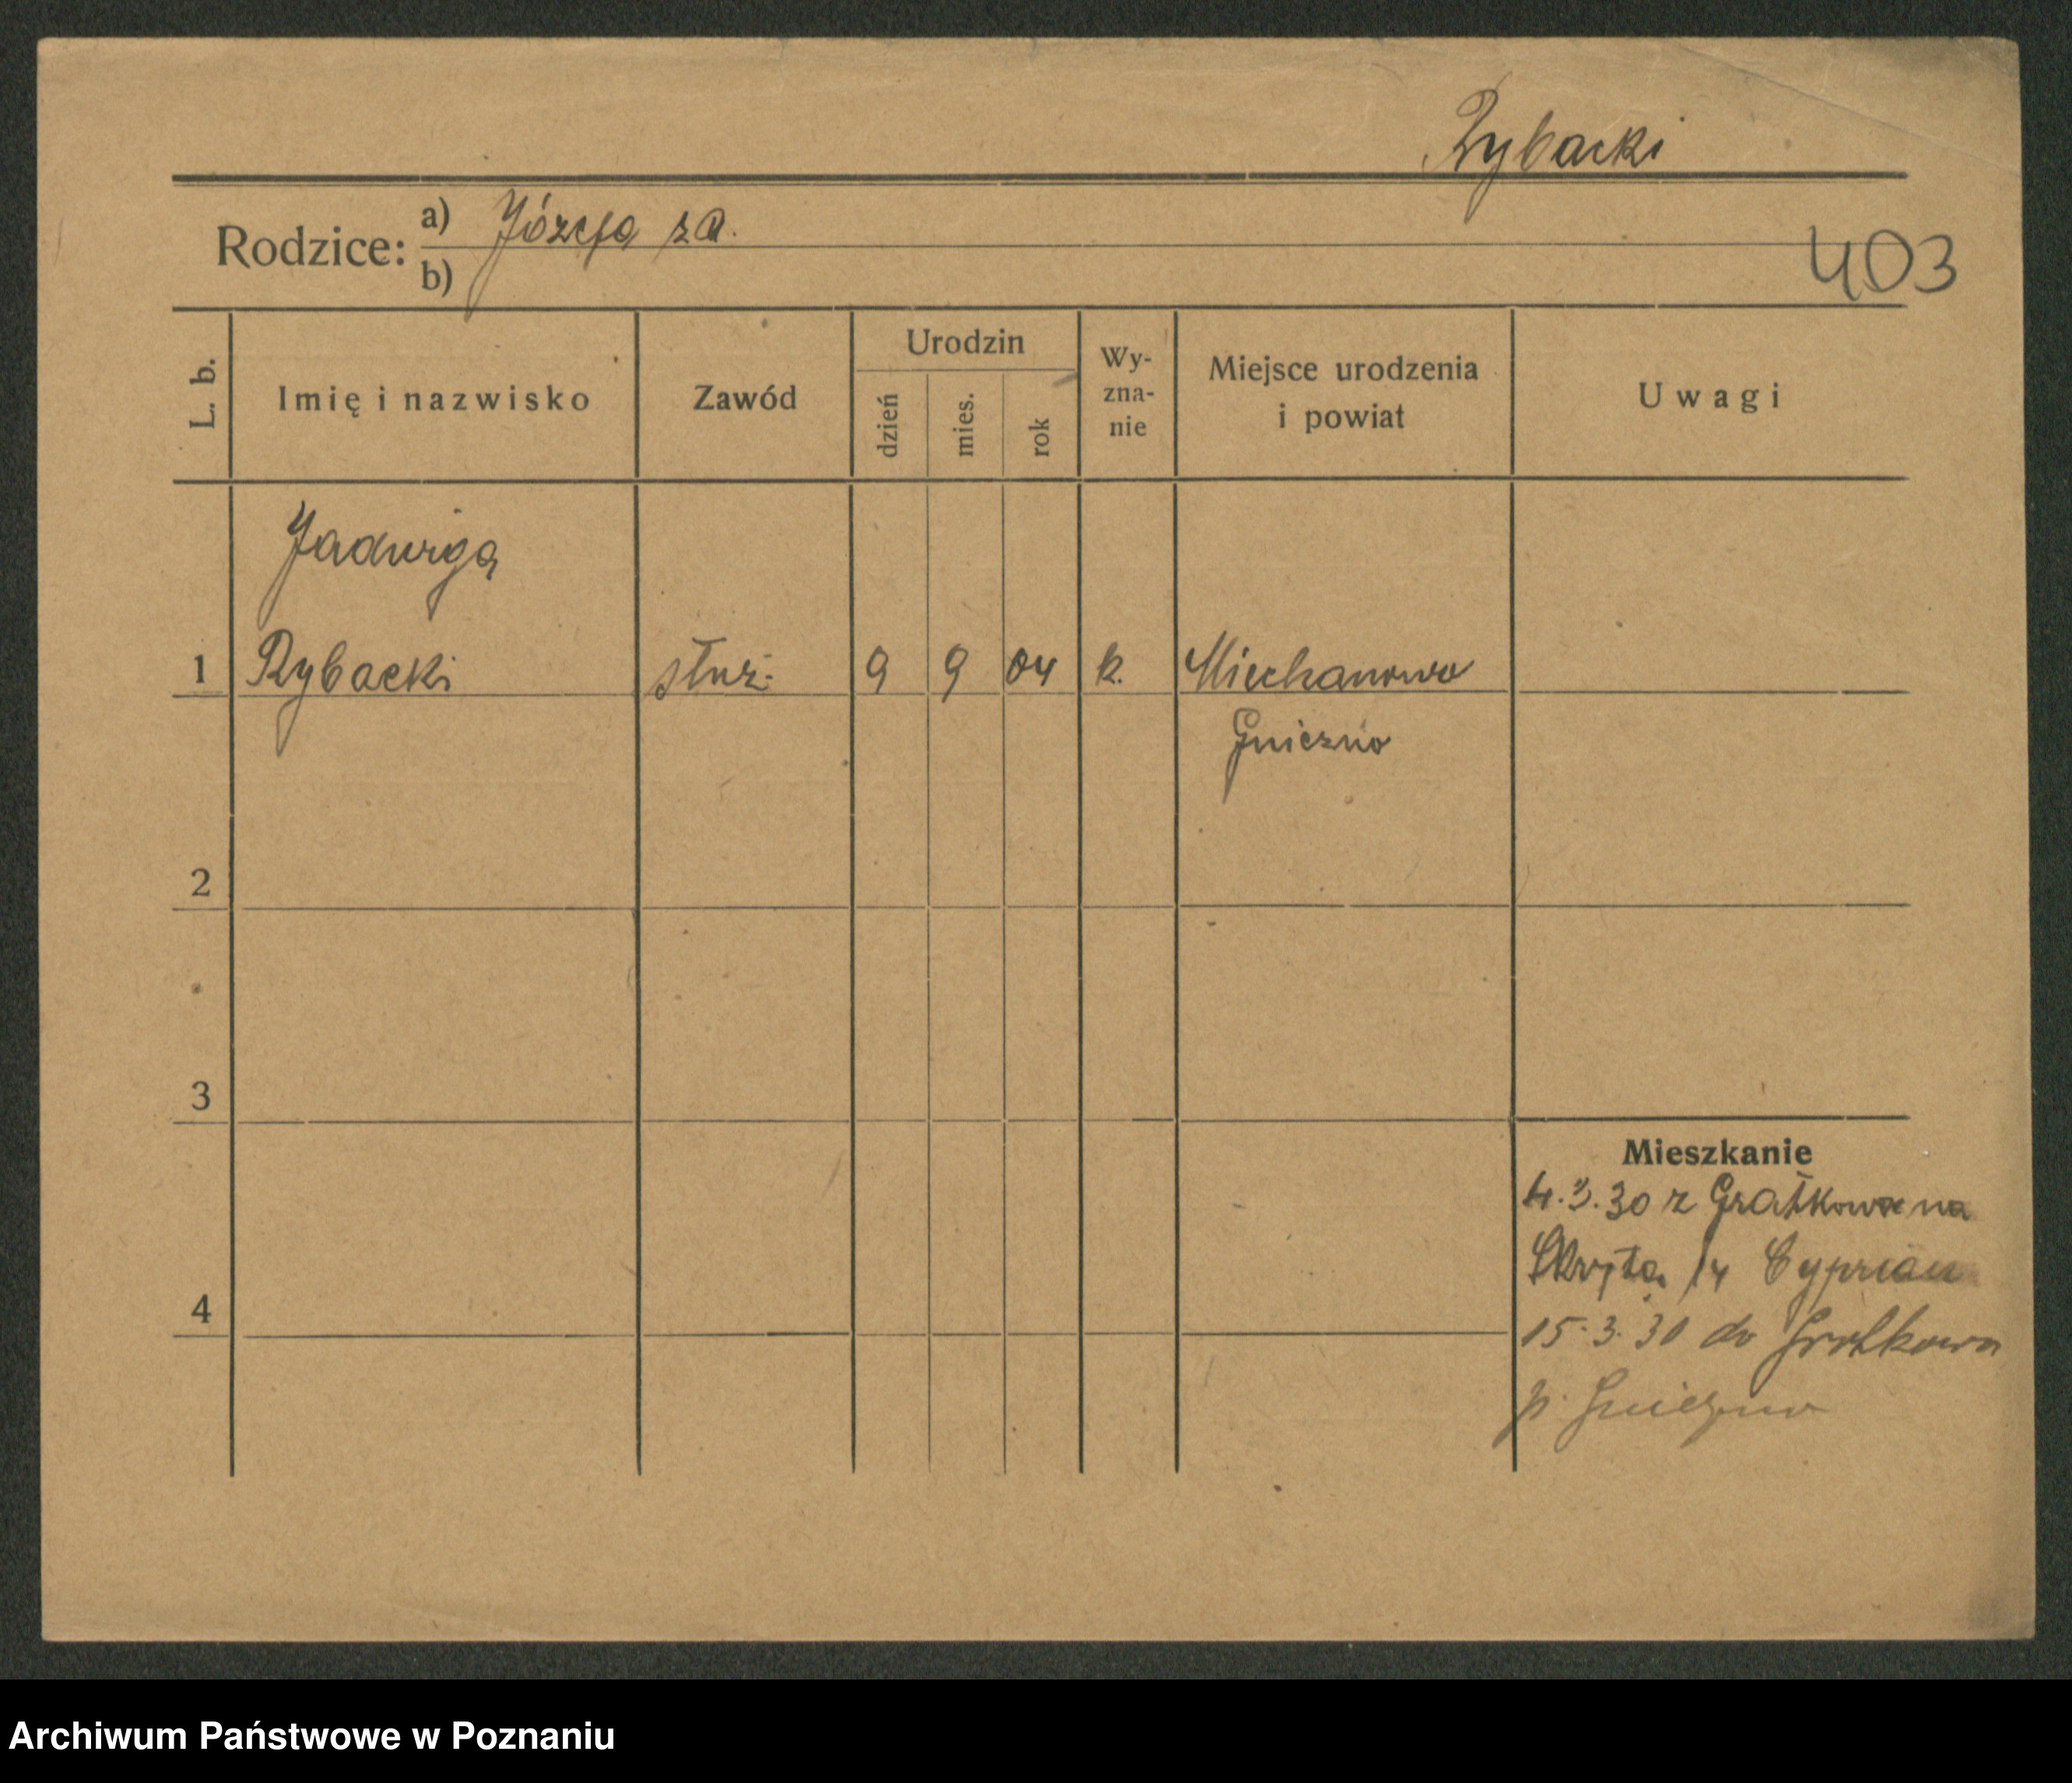 Rybacki
Rodzice: a) Józefa za.
b)
403
L. b.
Imię i nazwisko
Zawód
Urodzin
dzień
mies.
rok
Wy-
zna-
nie
Miejsce urodzenia
i powiat
Uwagi
Jadwiga
1 Rybacki służ. 9 9 04 k. Miechanowo
Gniezno
2
3
Mieszkanie
4.3.30 z Gratkowa na
14 Cyprian
4
15.3.30 do Grotkowa
p. Gniezno
Archiwum Państwowe w Poznaniu